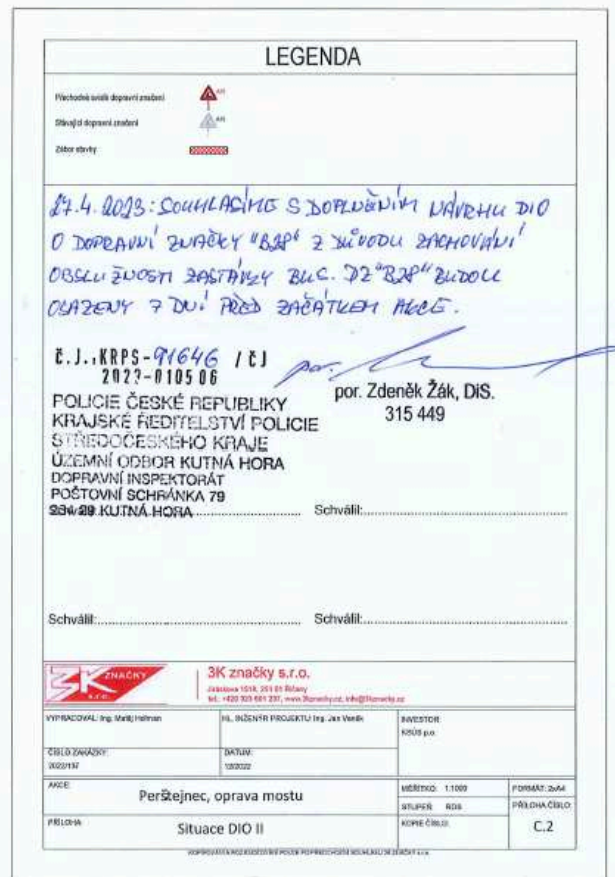 LEGENDA
Přechodné svislé dopravní značení
Stávající dopravní značení
Zábor stavby
27.4.2023: SOUHLASÍME S DOPLNĚNÍM NÁVRHU DIO
O DOPRAVNÍ ZNAČKY "B28" Z DŮVODU ZACHOVÁNÍ
OBSLUŽNOSTI ZASTÁVKY BUS. DZ "B28" BUDOU
OSAZENY 7 DNÍ PŘED ZAČÁTKEM AKCE.
č.j.:KRPS-91646 / ČJ
por.
por. Zdeněk Žák, DiS.
315 449
POLICIE ČESKÉ REPUBLIKY
KRAJSKÉ ŘEDITELSTVÍ POLICIE
STŘEDOČESKÉHO KRAJE
ÚZEMNÍ ODBOR KUTNÁ HORA
DOPRAVNÍ INSPEKTORÁT
POŠTOVNÍ SCHRÁNKA 79
KUTNÁ HORA
Schválil:
Schválil:
Schválil:
3K ZNAČKY
s.r.o.
3K značky s.r.o.
VYPRACOVAL: Ing. Matěj
HL. INŽENÝR PROJEKTU: Ing. Jan
INVESTOR:
KSÚS p.o.
ČÍSLO ZAKÁZKY:
2022/197
DATUM:
12/2022
AKCE:
Perštejnec, oprava mostu
MĚŘÍTKO: 1:1000
FORMÁT: 2xA4
STUPEŇ: RDS
PŘÍLOHA ČÍSLO:
PŘÍLOHA:
Situace DIO II
KOPIE ČÍSLO:
C.2